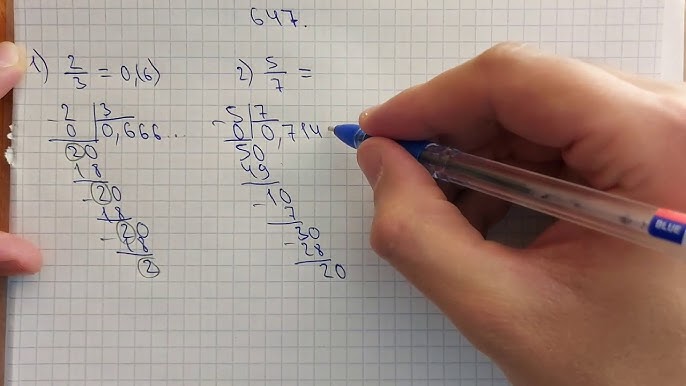 647.
1) 2/3 = 0,(6)
2) 5/7 =
- 2 | 3
0 | 0,666...
20
18
- 20
18
- 20
18
2
- 5 | 7
0 | 0,714
50
49
10
- 7
30
- 28
20
BLUE